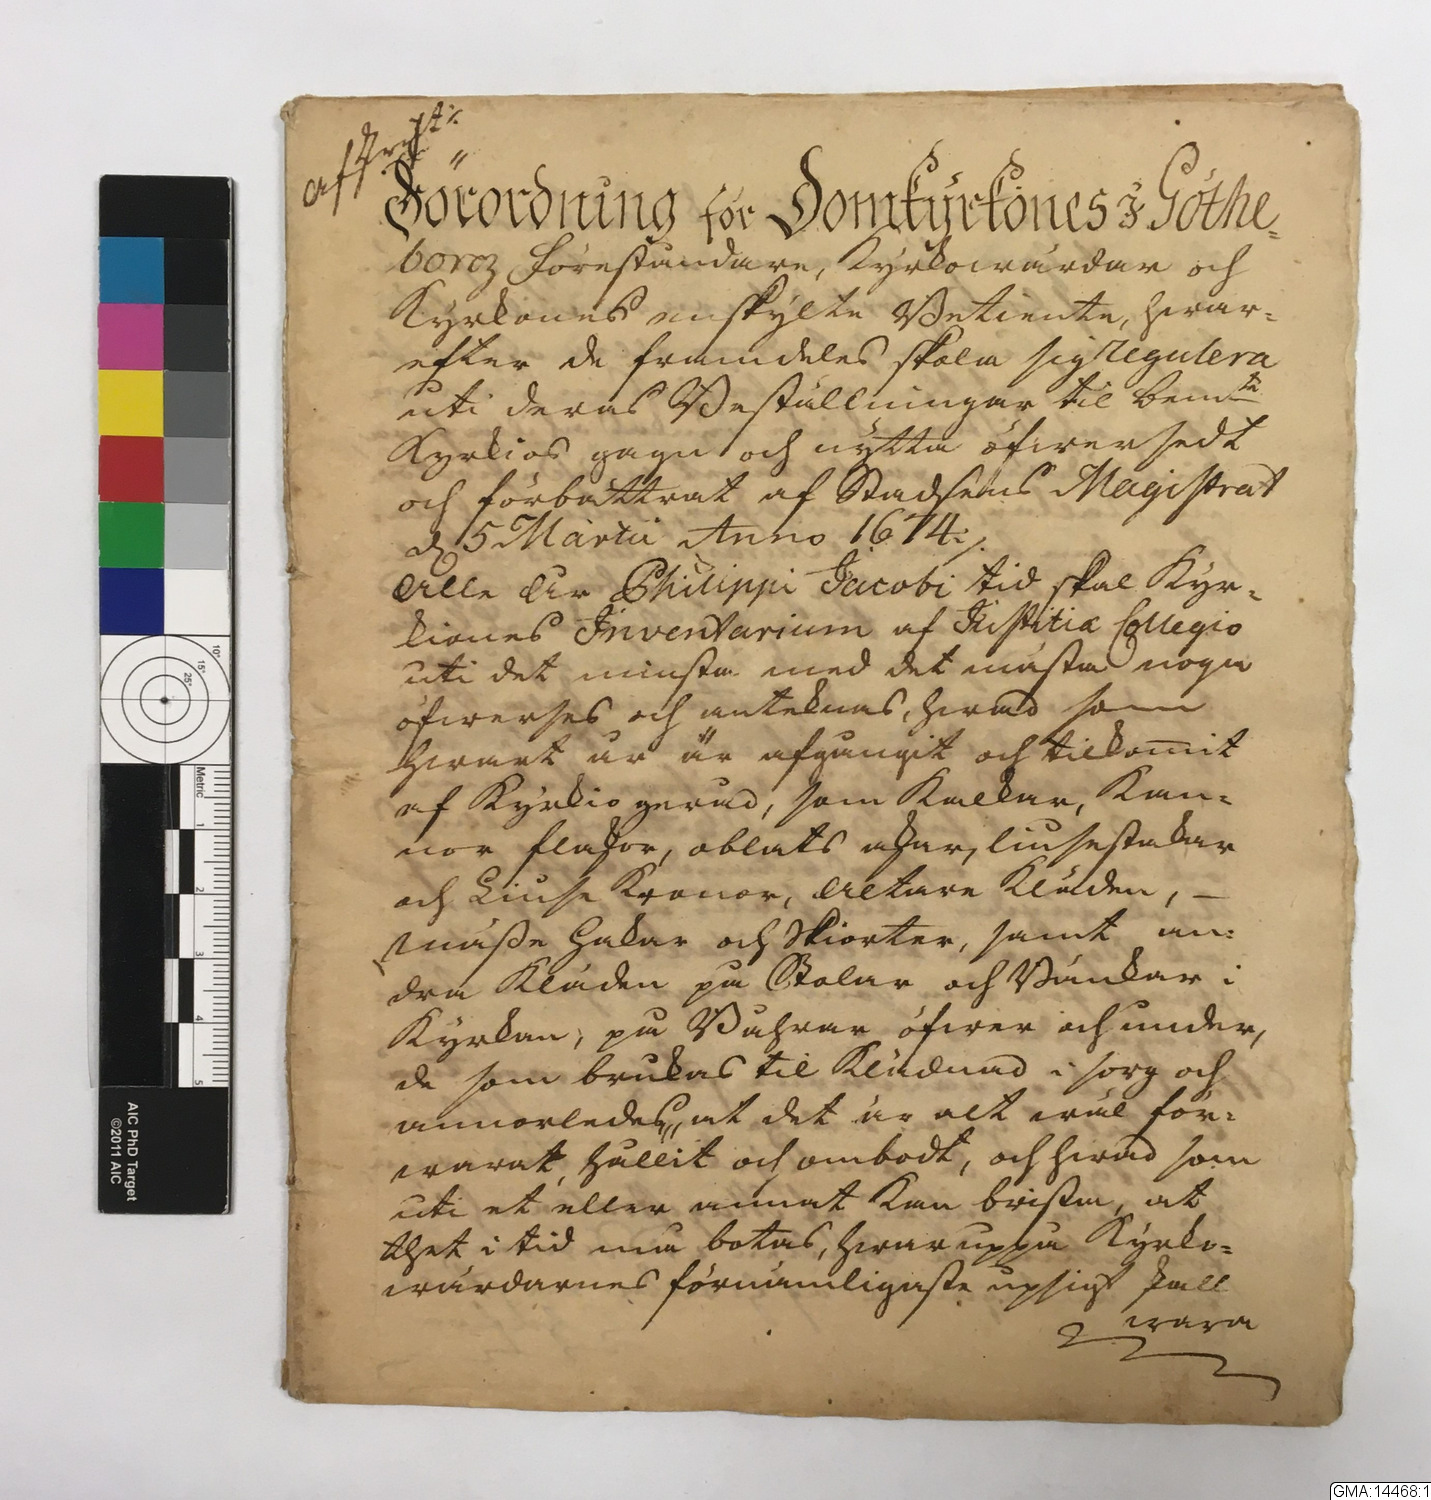 Förordning för Domkyrkiones i Göthe-
borg Förestandare, Kyrkiowärdar och
Kyrkiones enskylte Betiente, hwar-
efter de framdeles skola sig regulera
uti deras Beställningar til bem:te
Kyrkios gagn och nytta öfwersedt
och förbättrat af Stadsens Magistrat
d 5 Martii Anno 1674
Alle Åhr Philippi Jacobi tid skal Kyr-
kiones Inventarium af Justitiæ Collegio
uti det minsta med det mästa noga
öfwerses och anteknas, hwad som
hwart år är afgangit och tilkom̅it
af Kyrkio gerad, som Kalkar, Kan-
nor flaskor, oblats askar, liusestakar
och Liuse Kronor, Altare Kläden, —
mässe Hakar och Skiorter, samt an-
dra Kläden på Stolar och Bänkar i
Kyrkan, på Bahrar öfwer och under,
de som brukas til Klädnad i sorg och
annorledes, at det är alt wäl för-
warat, hållit och ombodt, och hwad som
uti et eller annat kan brista, at
thet i tid må botas, hwaruppå Kyrko-
wärdarnes förnämligaste upsigt skall
wara
AIC PhD Target
©2011 AIC
Metric
1
2
3
4
5
10°
15°
25°
GMA:14468:1